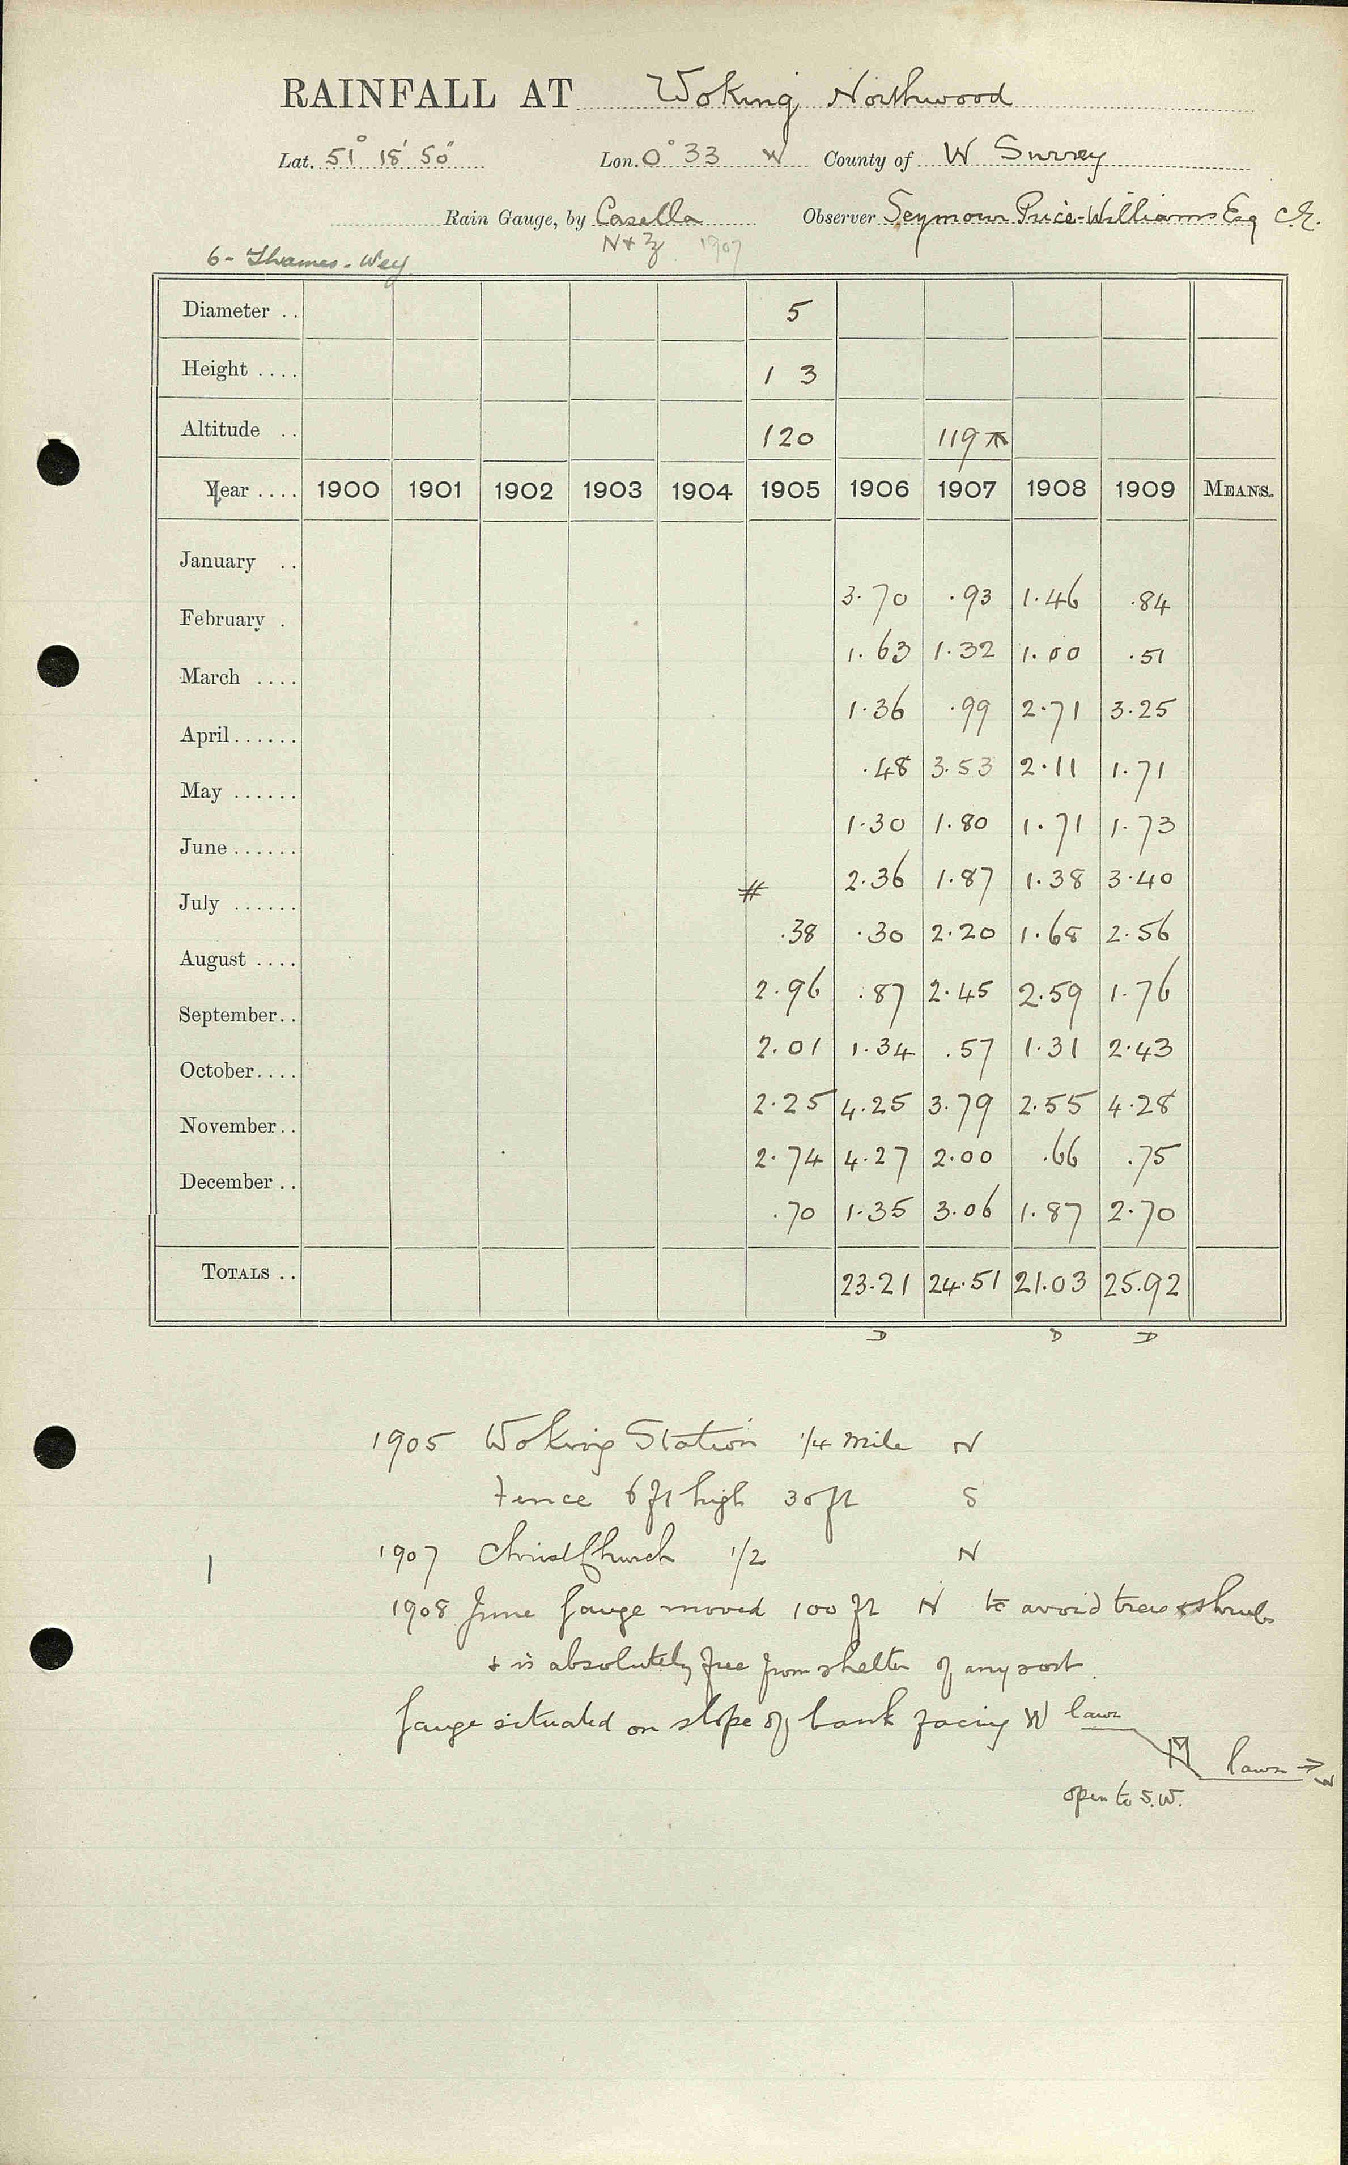 RAINFALL AT Woking Northwood
Lat. 51° 18' 50" Lon. 0° 33 W County of W Surrey
Rain Gauge, by Casella Observer Seymour Price-Williams Esq C.E.
N & Z 1907
6 - Thames - Wey
Diameter .. 5
Height .... 1 3
Altitude .. 120 119
Year .... 1900 1901 1902 1903 1904 1905 1906 1907 1908 1909 MEANS.
January .. 3.70 .93 1.46 .84
February . 1.63 1.32 1.00 .51
March .... 1.36 .99 2.71 3.25
April ...... .48 3.53 2.11 1.71
May ...... 1.30 1.80 1.71 1.73
June ...... 2.36 1.87 1.38 3.40
July ...... # .38 .30 2.20 1.68 2.56
August .... 2.96 .87 2.45 2.59 1.76
September .. 2.01 1.34 .57 1.31 2.43
October .... 2.25 4.25 3.79 2.55 4.28
November .. 2.74 4.27 2.00 .66 .75
December .. .70 1.35 3.06 1.87 2.70
TOTALS .. 23.21 24.51 21.03 25.92
D D D
1905 Woking Station 1/4 mile N
Fence 6 ft high 30 ft S
1907 Christ Church 1/2 N
1908 June Gauge moved 100 ft N to avoid trees & shrubs
& is absolutely free from shelter of any sort.
Gauge situated on slope of bank facing W lawn
lawn → W
open to S.W.